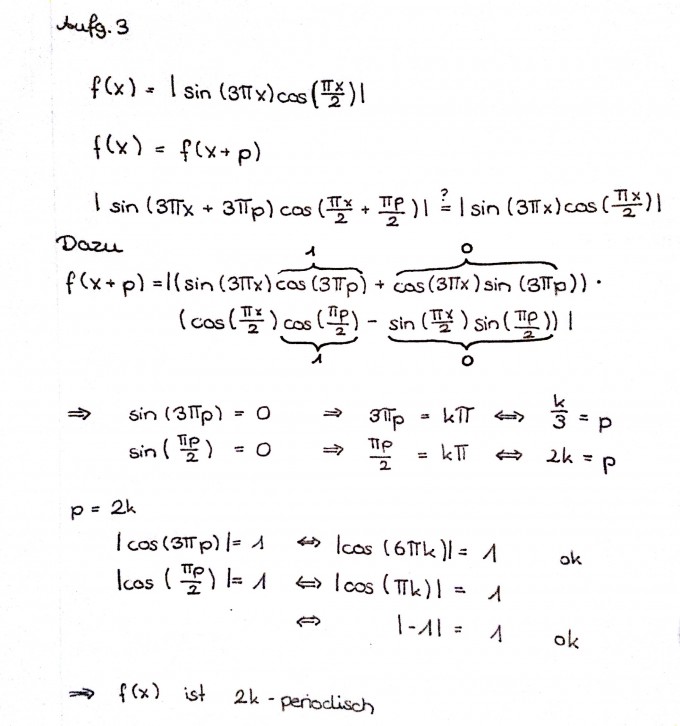 Aufg. 3
f(x) = | sin (3πx) cos(πx/2) |
f(x) = f(x+p)
| sin (3πx + 3πp) cos (πx/2 + πp/2) | ?= | sin (3πx) cos (πx/2) |
Dazu
1 0
f(x+p) = |(sin (3πx) cos (3πp) + cos(3πx) sin (3πp)) ·
(cos(πx/2) cos(πp/2) - sin(πx/2) sin(πp/2)) |
1 0
⇒ sin (3πp) = 0 ⇒ 3πp = kπ ⇔ k/3 = p
sin (πp/2) = 0 ⇒ πp/2 = kπ ⇔ 2k = p
p = 2k
|cos (3πp)| = 1 ⇔ |cos (6πk)| = 1 ok
|cos (πp/2)| = 1 ⇔ |cos (πk)| = 1
⇔ |-1| = 1 ok
⇒ f(x) ist 2k-periodisch